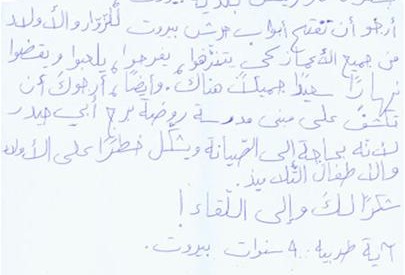 بلدية بيروت
أرجو أن تفتح أبواب حرش بيروت للزوّار والأولاد
من جميع الأعمار كي يتنزّهوا، يفرحوا، يلعبوا ويقضوا
نهارًا سعيدًا جميلًا هناك. وأيضًا، أرجوك أن
تكشف على مبنى مدرسة روضة برج أبي حيدر
لأنّه بحاجة إلى الصّيانة ويشكّل خطرًا على الأولاد
والأطفال التّلاميذ.
شكرًا لكَ وإلى اللّقاء!
آية طربيه: ٩ سنوات بيروت.